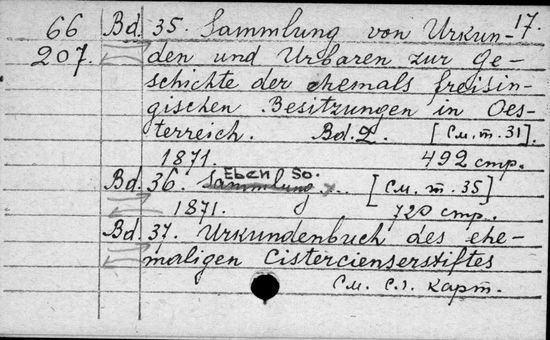 17.
66 Bd. 35. Sammlung von Urkun-
207. den und Urbaren zur Ge-
schichte der ehemals freisin-
gischen Besitzungen in Oes-
terreich. Bd. 2. [См. т. 31].
1871. 492 стр.
Bd. 36. Sammlung... Eben So. [См. т. 35]
1871. 720 стр.
Bd. 37. Urkundenbuch des ehe-
maligen Cistercienserstiftes
См. сл. карт.